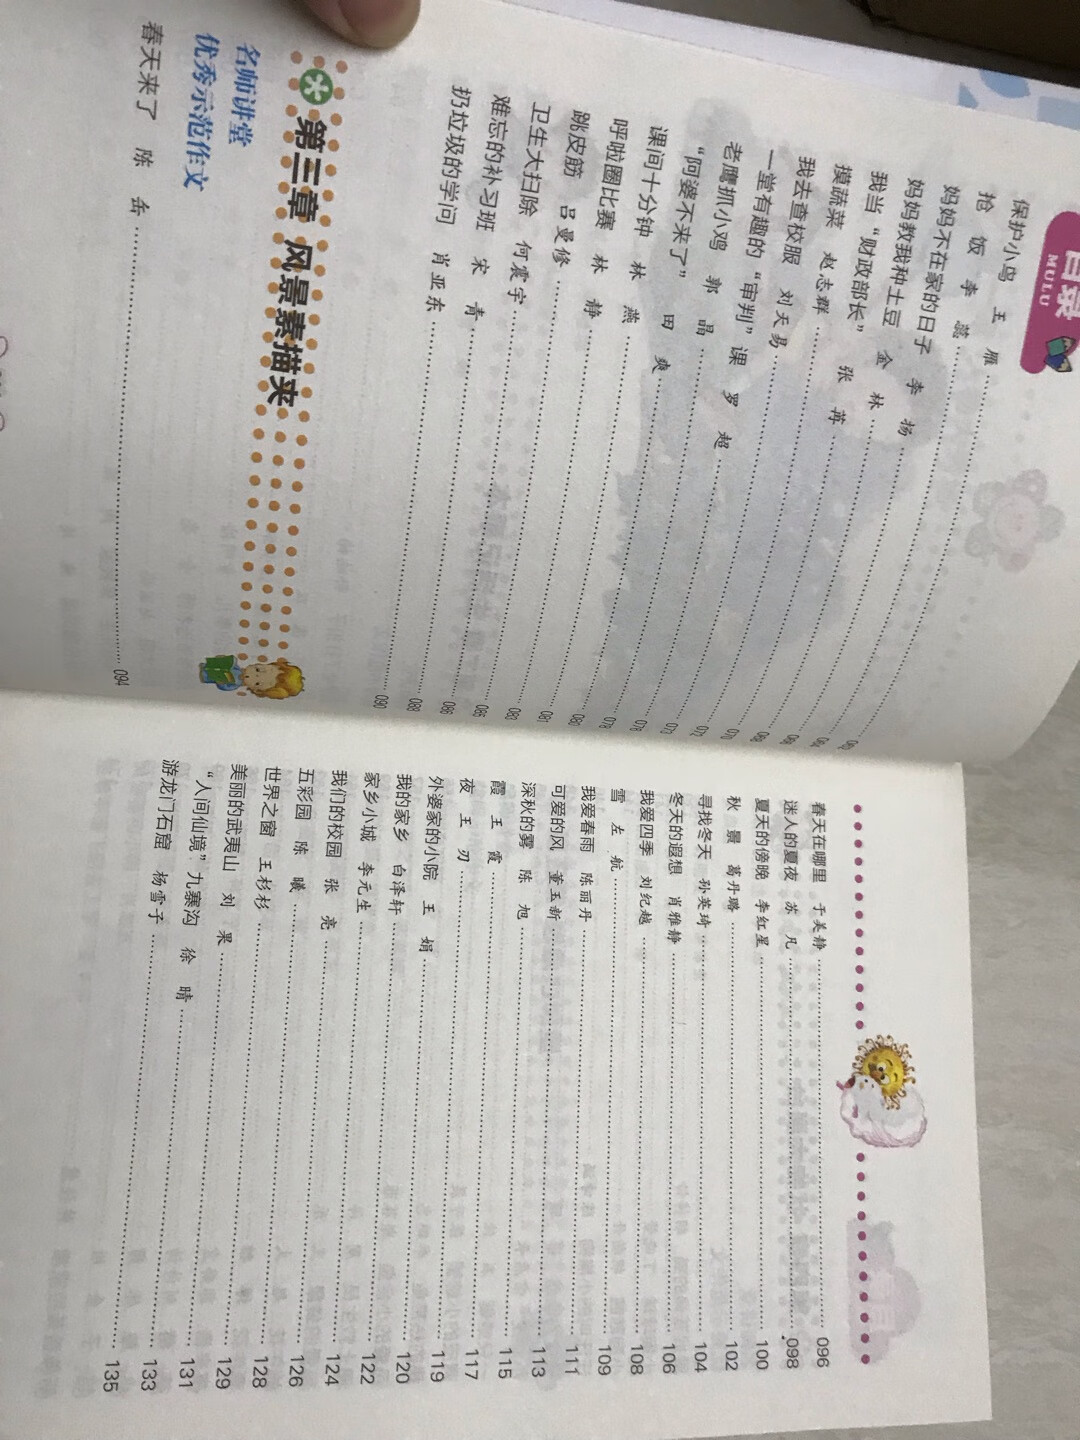 目录
MULU
保护小鸟 王 雁
抢 饭 李 蕊
妈妈不在家的日子 李 扬
妈妈教我种土豆 金 林
我当“财政部长” 张 苒 070
摸蔬菜 赵志群 072
我去查校服 刘天易 073
一堂有趣的“审判”课 罗 超 076
老鹰抓小鸡 郭 晶 078
“阿婆不来了” 田 爽 080
课间十分钟 林 燕 081
呼啦圈比赛 林 静 083
跳皮筋 吕曼修 085
卫生大扫除 何震宇 086
难忘的补习班 宋 青 088
扔垃圾的学问 肖亚东 090
第三章 风景素描夹
名师讲堂
优秀示范作文
春天来了 陈 岳 094
春天在哪里 于美静 096
迷人的夏夜 苏 凡 098
夏天的傍晚 李红星 100
秋 景 葛丹璐 102
寻找冬天 孙英琦 104
冬天的遐想 肖雅静 106
我爱四季 刘纪越 108
雪 左 航 109
我爱春雨 陈丽丹 111
可爱的风 董玉新 113
深秋的雾 陈 旭 115
霞 王 霞 117
夜 王 刃 119
外婆家的小院 王 娟 120
我的家乡 白泽轩 122
家乡小城 李元生 124
我们的校园 张 亮 126
五彩园 陈 曦 128
世界之窗 王杉杉 129
美丽的武夷山 刘 果 131
“人间仙境”九寨沟 徐 晴 133
游龙门石窟 杨雪子 135